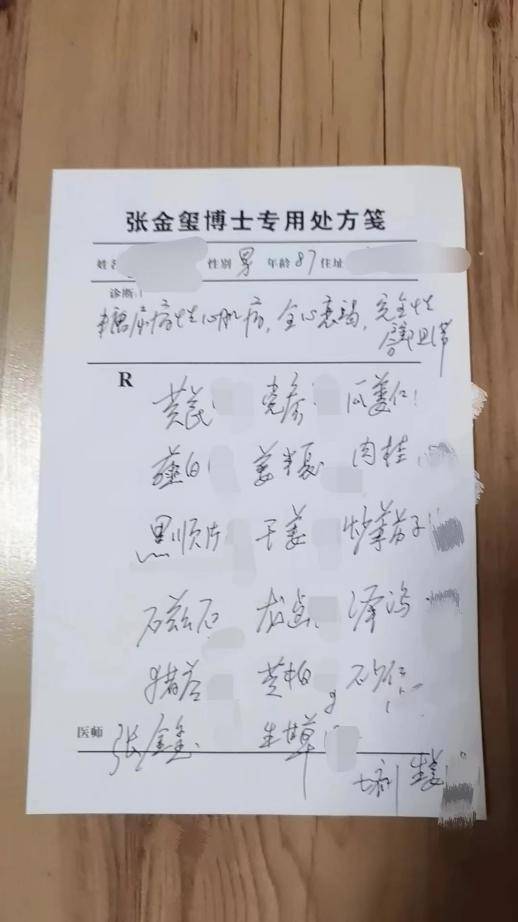 张金玺博士专用处方笺
姓名 性别 男 年龄 87 住址
诊断:
糖尿病性心肌病,全心衰竭,完全性
R
黄芪 党参 瓜蒌仁
薤白 姜半夏 肉桂
黑顺片 干姜 炒葶苈子
磁石 龙齿 泽泻
猪苓 黄柏 砂仁
医师 张金玺 生甘草
七剂 生姜